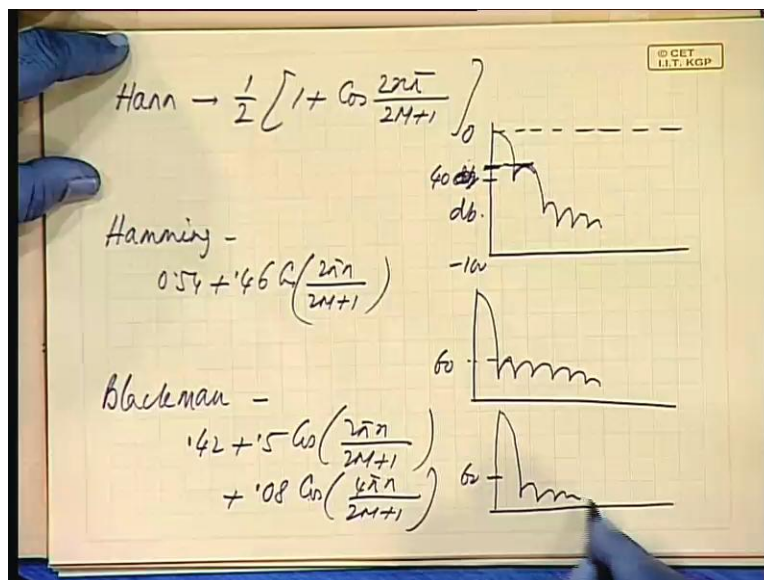 © CET
I.I.T. KGP
Hann → 1/2 [1 + Cos 2nπ/2M+1]
0
40
db.
-100
Hamming -
0.54 + .46 Cos(2πn/2M+1)
60
Blackman -
.42 + .5 Cos(2πn/2M+1)
+ .08 Cos(4πn/2M+1)
60